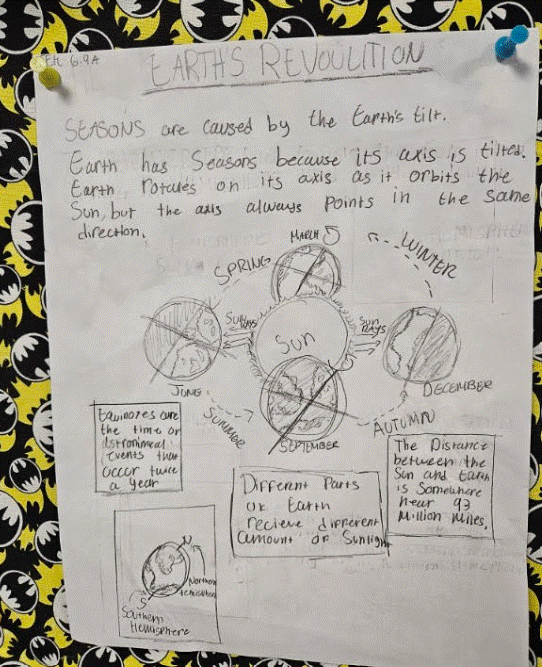 6.9A
EARTH'S REVOULITION
SEASONS are caused by the Earth's tilt.
Earth has Seasons because its axis is tilted.
Earth rotates on its axis as it orbits the
Sun, but the axis always points in the same
direction.
MARCH
WINTER
SPRING
SUN RAYS
Sun
SUN RAYS
JUNE
DECEMBER
SUMMER
AUTUMN
SEPTEMBER
Equinoxes are
the time or
astronimcal
events that
occur twice
a year
Different Parts
of Earth
recieve different
amount of Sunlight
The Distance
between the
Sun and Earth
is Somewhere
near 93
Million Miles.
N
Northern
Hemisphere
S
Southern
Hemisphere